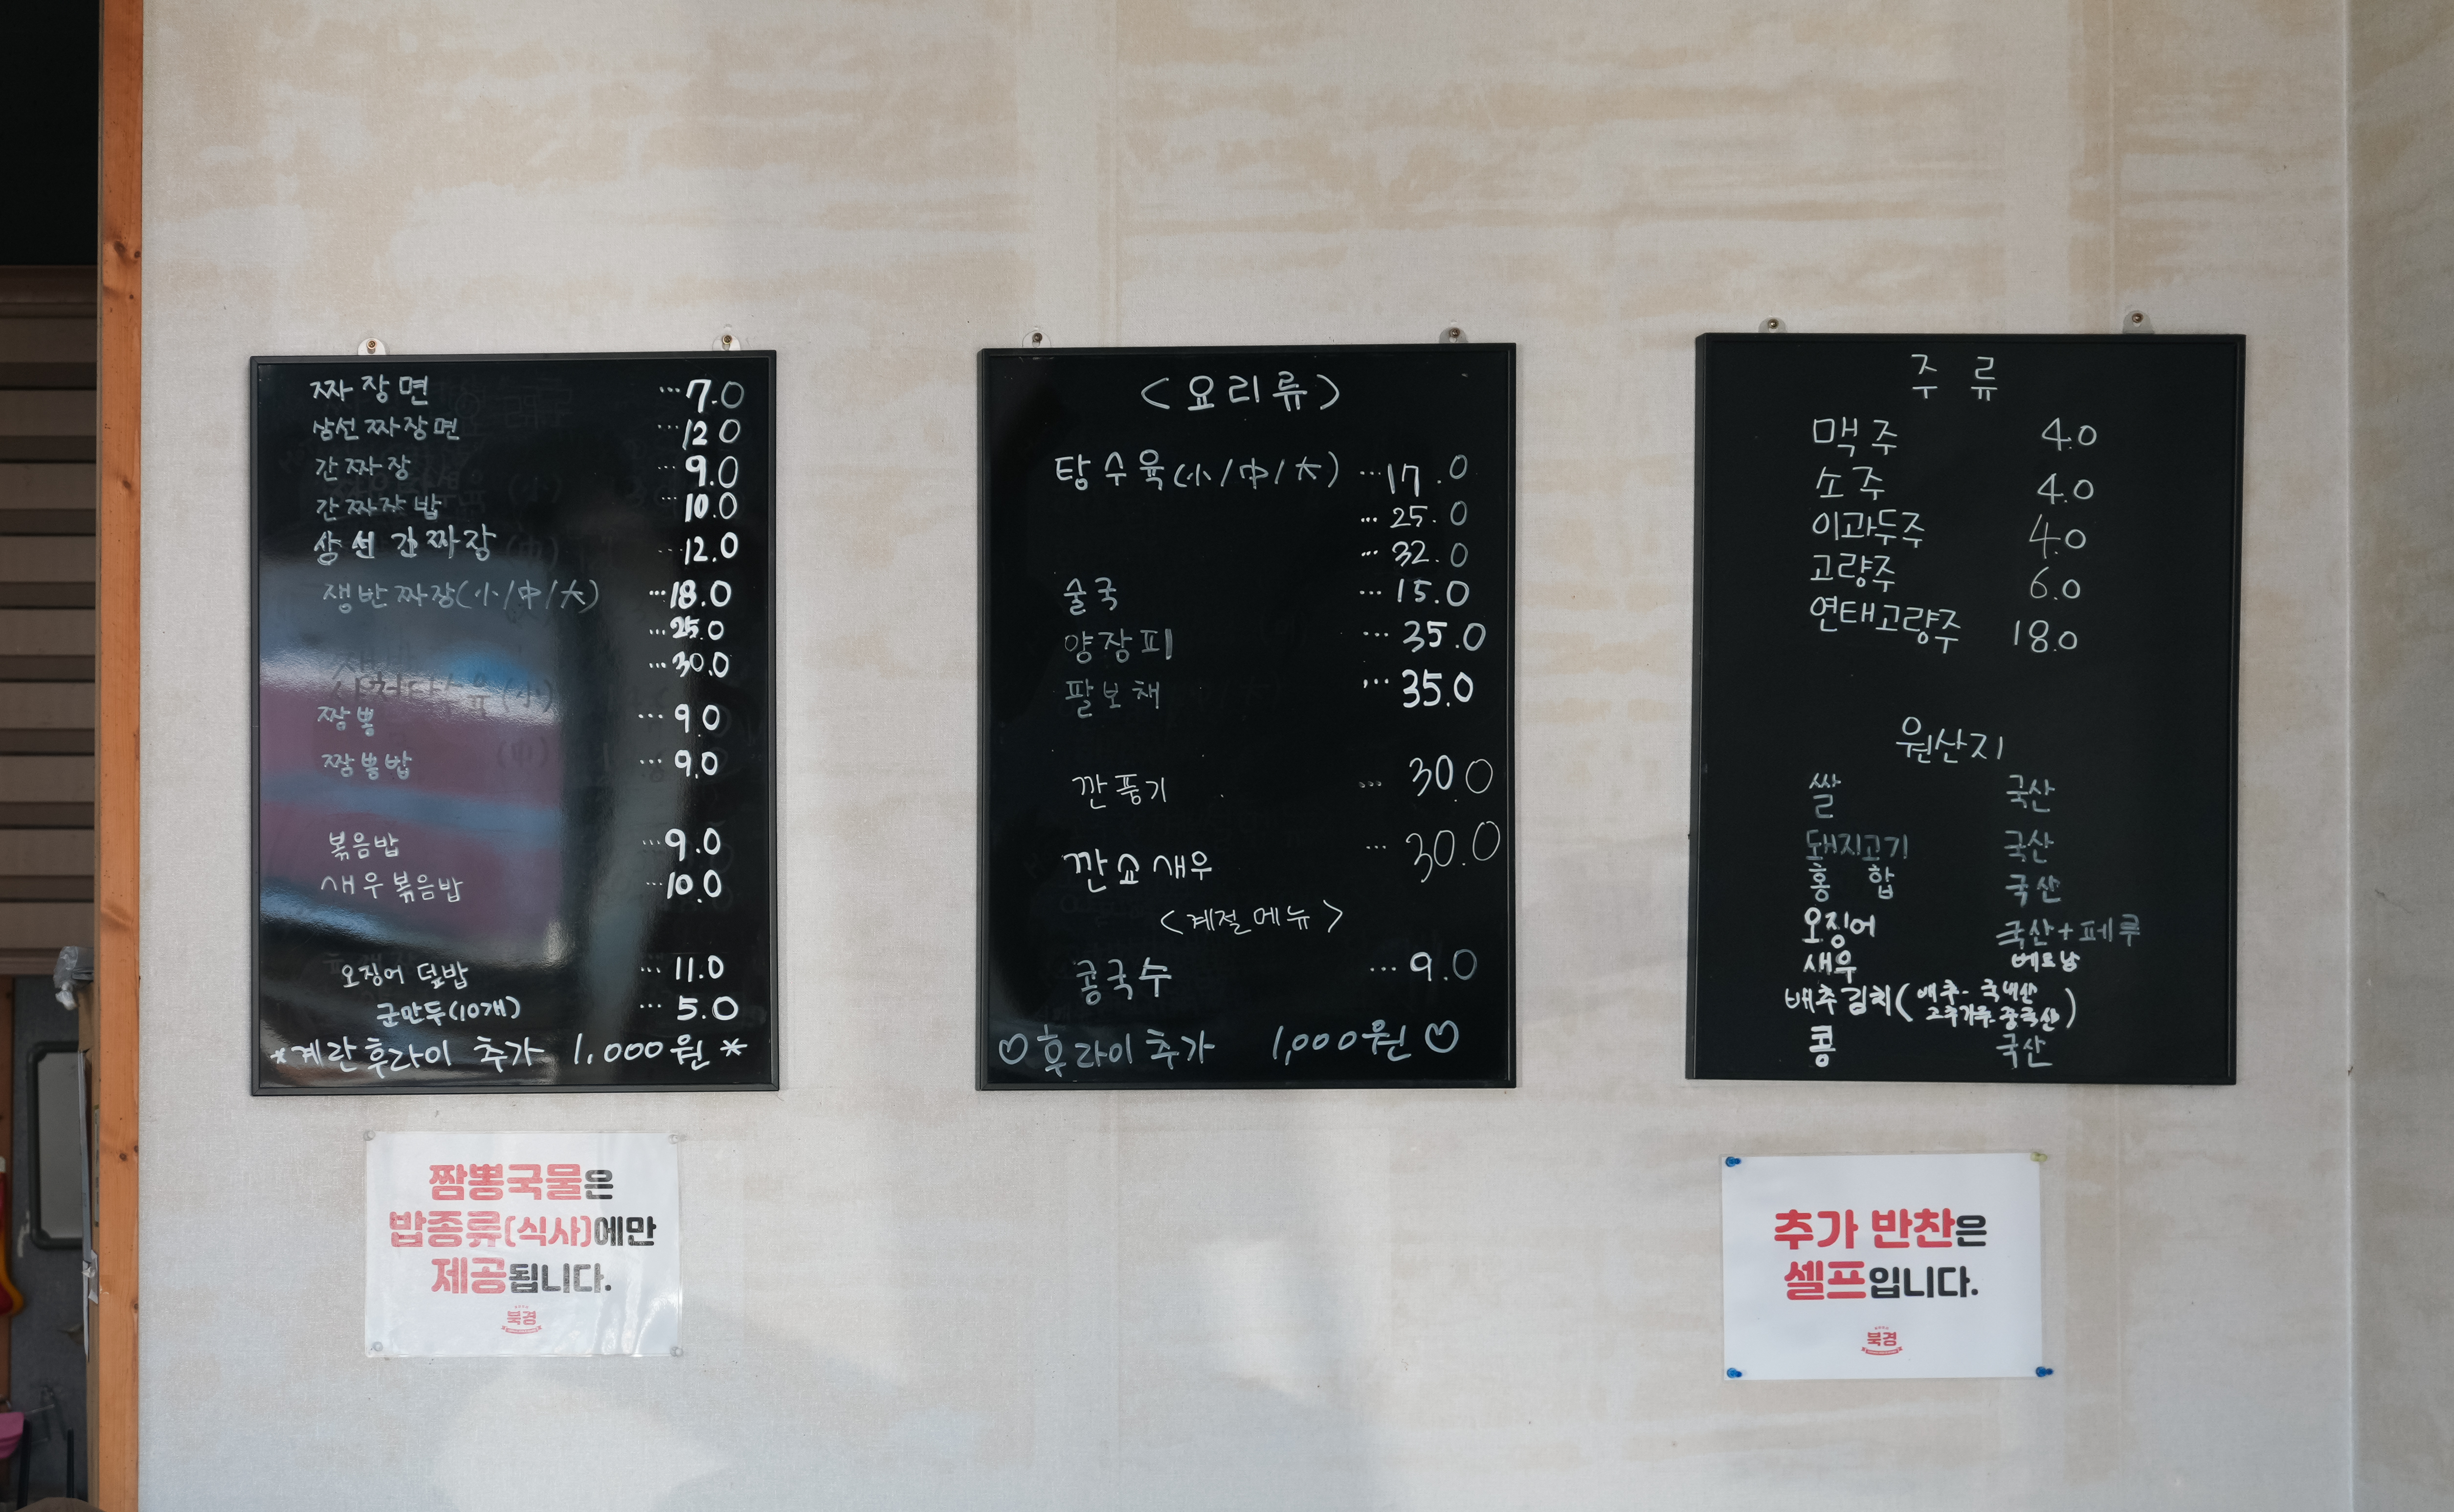 짜장면 ...7.0
삼선짜장면 ...12 0
간짜장 ...9.0
간짜장밥 ...10.0
삼선간짜장 ...12.0
쟁반짜장(小/中/大) ...18.0
...25.0
...30.0
짬뽕 ...9.0
짬뽕밥 ...9.0
볶음밥 ...9.0
새우볶음밥 ...10.0
오징어 덮밥 ...11.0
군만두(10개) ...5.0
*계란후라이 추가 1,000원*
<요리류>
탕수육(小/中/大) ...17.0
...25.0
...32.0
술국 ...15.0
양장피 ...35.0
팔보채 ...35.0
깐풍기 ...30.0
깐쇼새우 ...30.0
<계절메뉴>
콩국수 ...9.0
♡후라이추가 1,000원♡
주류
맥주 4.0
소주 4.0
이과두주 4.0
고량주 6.0
연태고량주 18.0
원산지
쌀 국산
돼지고기 국산
홍합 국산
오징어 국산+페루
새우 베트남
배추김치(배추-국내산
고추가루-중국산)
콩 국산
짬뽕국물은
밥종류(식사)에만
제공됩니다.
북경
추가 반찬은
셀프입니다.
북경